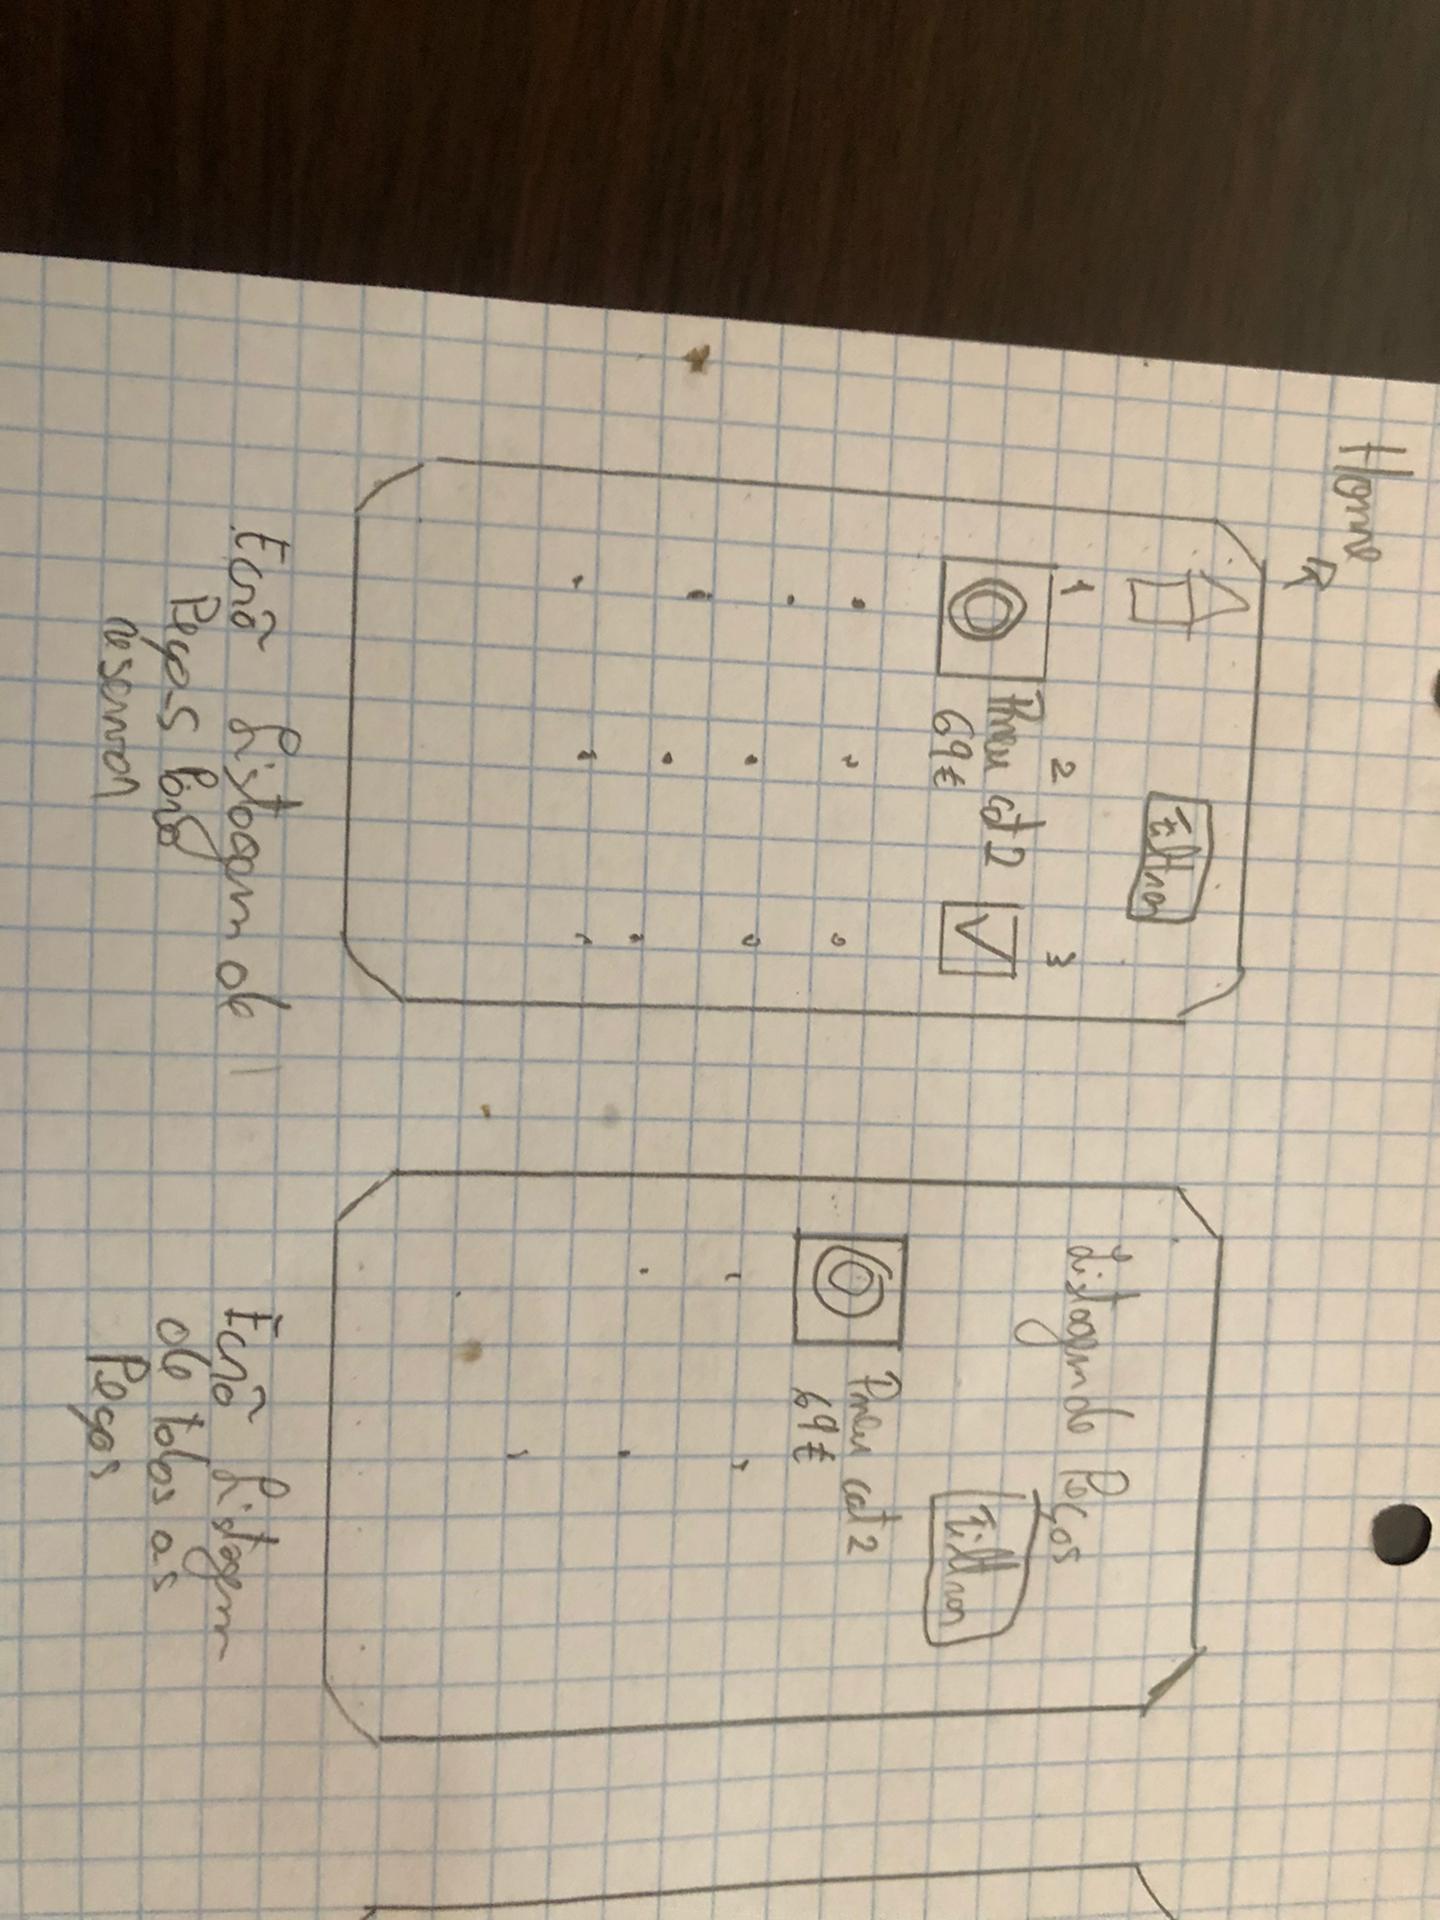 Home
Filtrar
1 2 3
Pneu cat 2
69€
Ecrã Listagem de
Peças para
reservar
Listagem de Peças
Filtrar
Pneu cat 2
69€
Ecrã Listagem
de todas as
Peças